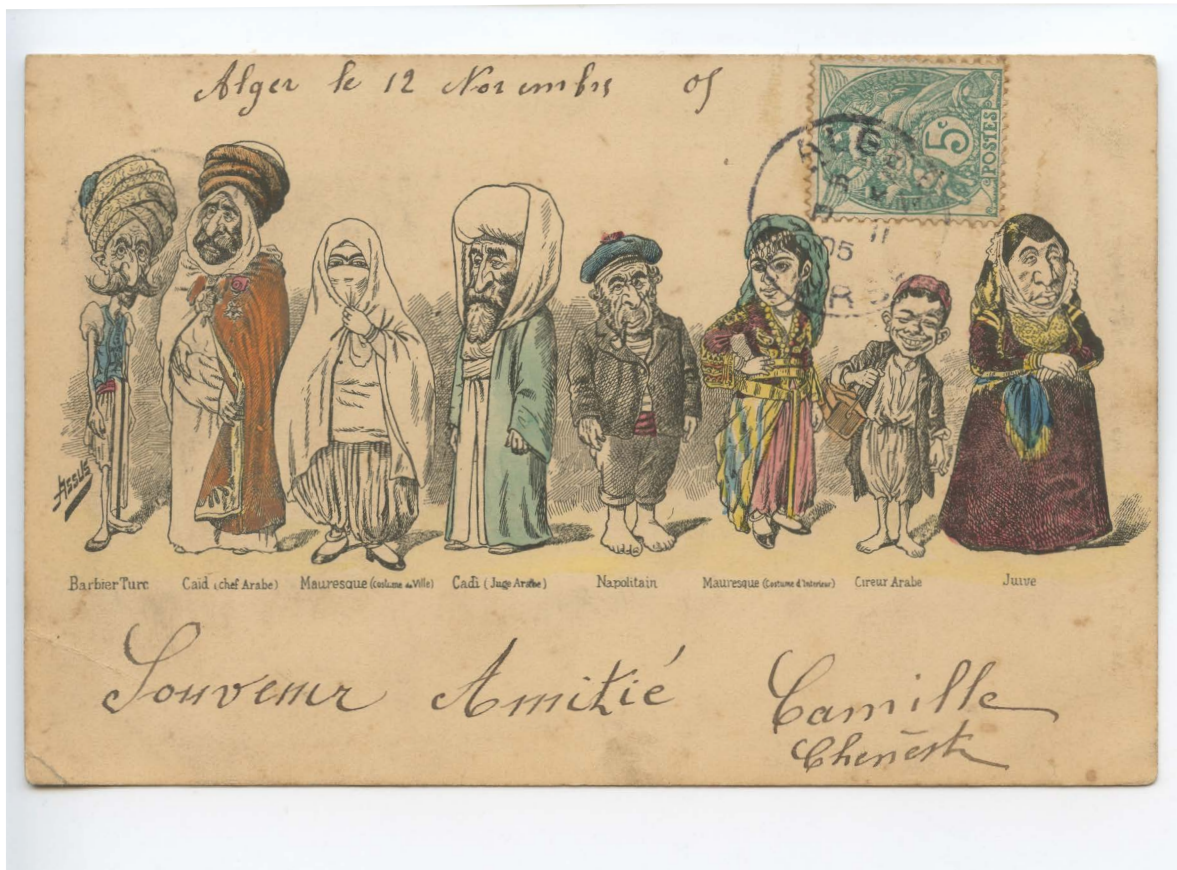 Alger le 12 Novembre 05
5c
POSTES
ALGER
11
05
ASSUS
Barbier Turc Caid (chef Arabe) Mauresque (Costume de Ville) Cadi (Juge Arabe) Napolitain Mauresque (Costume d'Interieur) Cireur Arabe Juive
Souvenir Amitié Camille